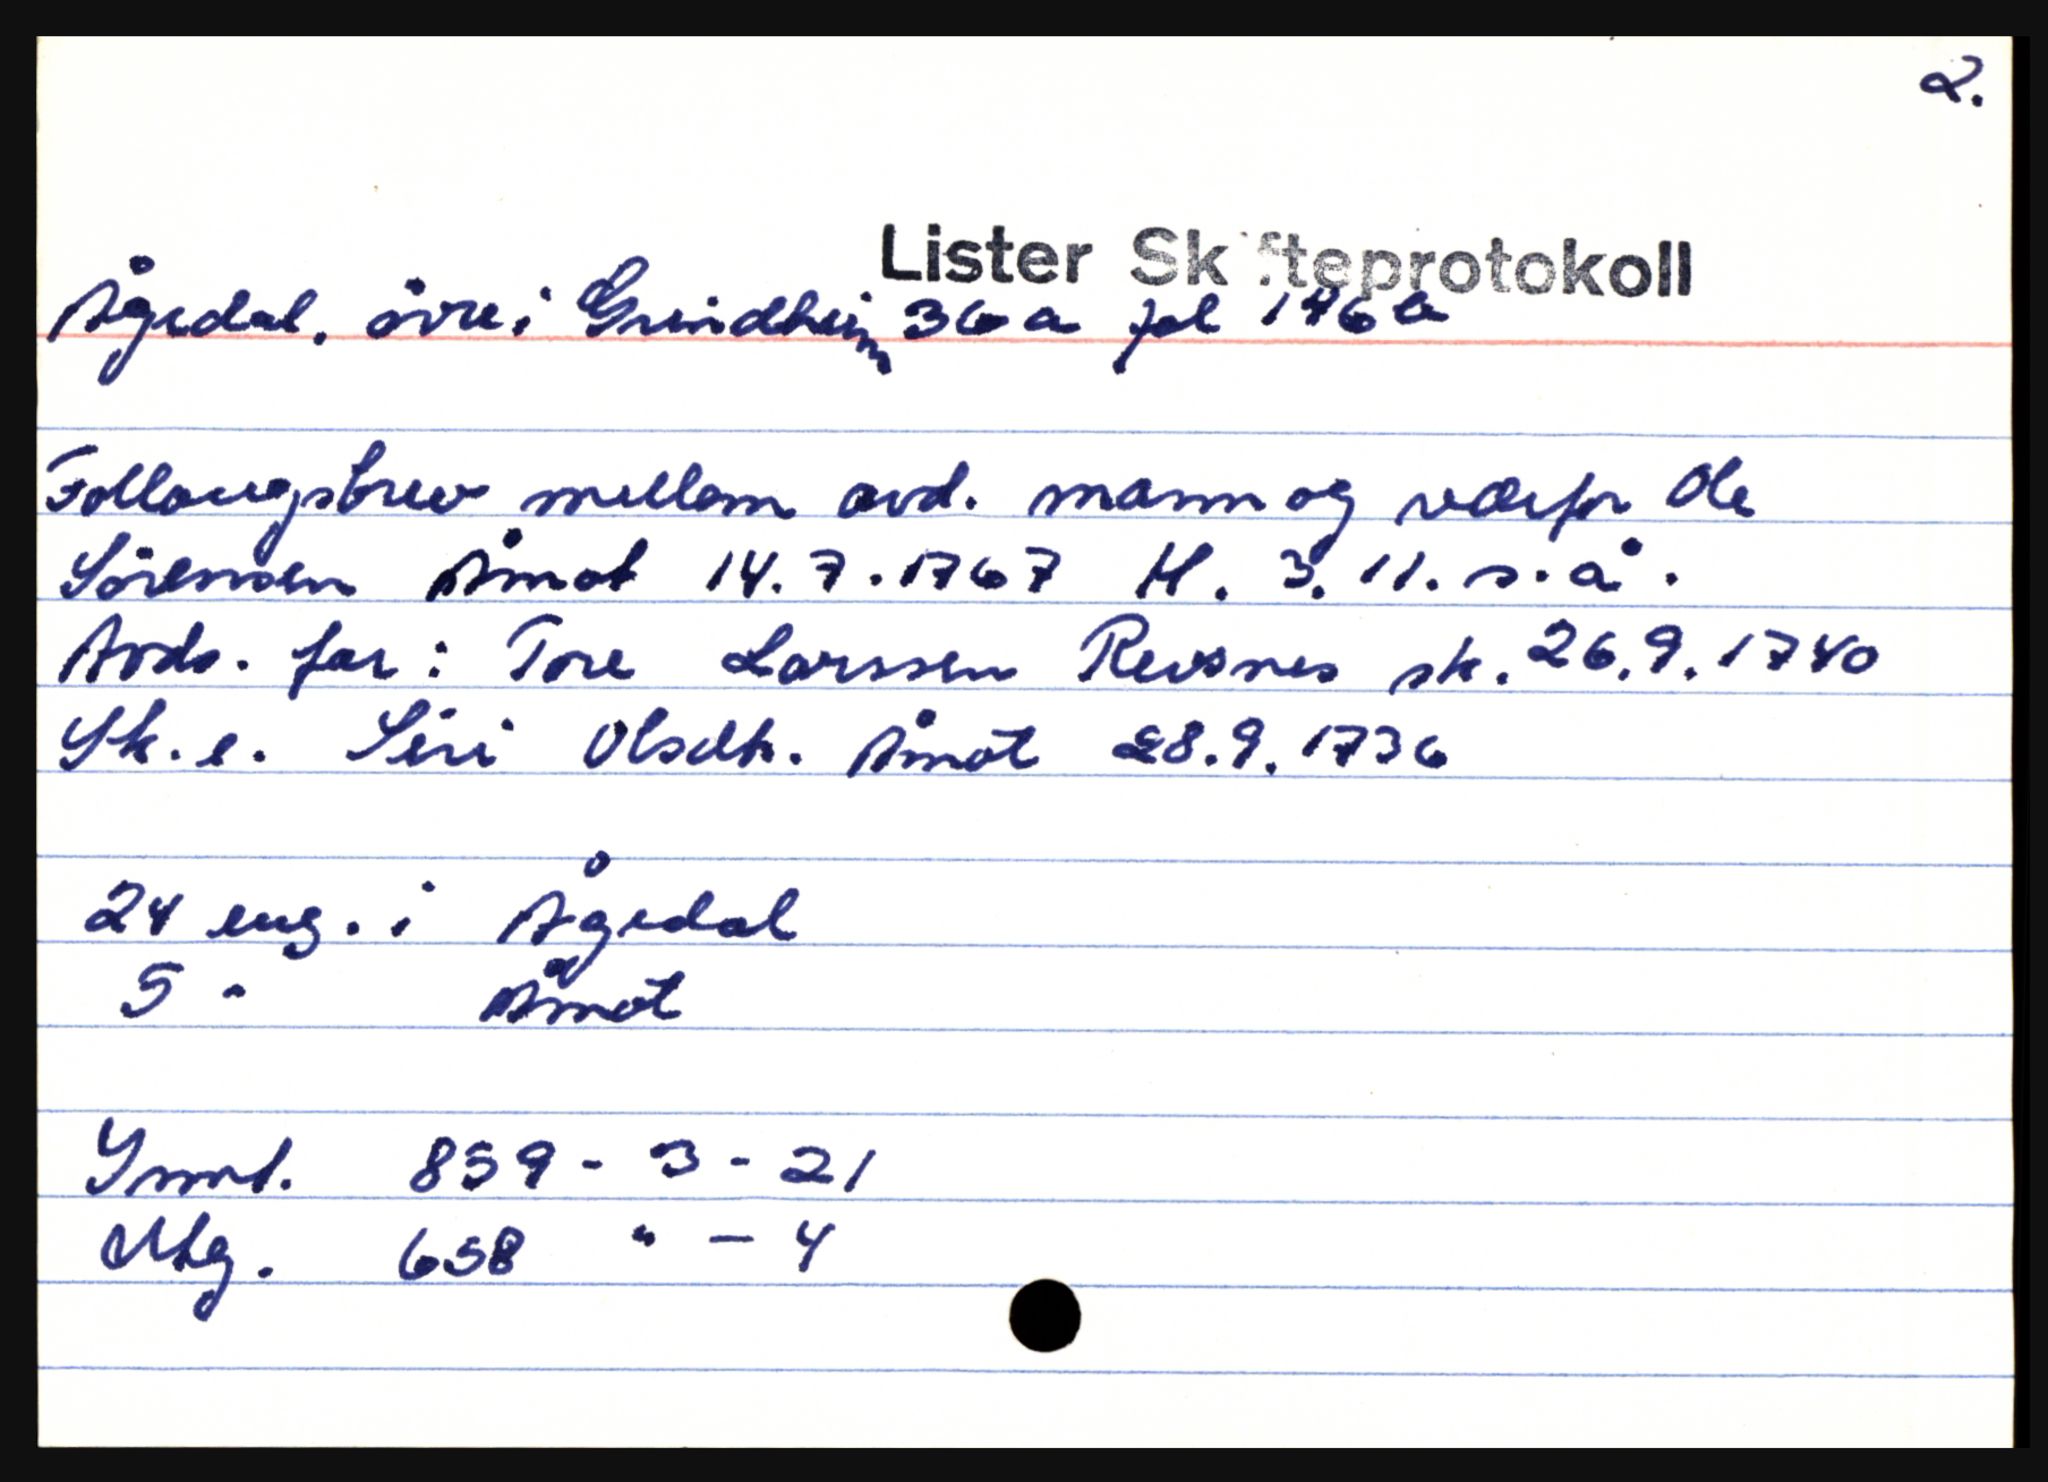 2.
Lister Skifteprotokoll
Ågedal, övre i Grindheim 36 a fol 146 b
Follaugsbrev mellom avd. mann og værfar Ole
Sörensen Åmot 14.7.1767 H. 3.11. s.å.
Avds. far: Tore Larssen Reisnes sk. 26.9.1740
Sk. e. Siri Olsdtr. Åmot 28.9.1736
24 eng. i Ågedal
5 " Åmot
Innt. 859 - 3 - 21
Utg. 658 " - 4